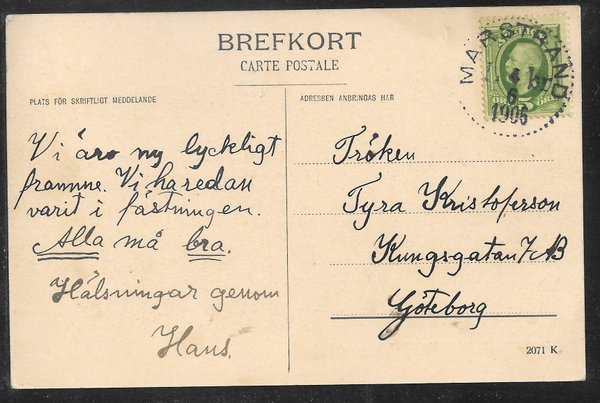 BREFKORT
CARTE POSTALE
MARSTRAND
4
6
1906
PLATS FÖR SKRIFTLIGT MEDDELANDE
ADRESSEN ANBRINGAS HÄR
Vi äro ny lyckligt
framme. Vi ha redan
varit i fästningen.
Alla må bra.
Hälsningar genom
Hans.
Fröken
Tyra Kristoferson
Kungsgatan 7 AB
Göteborg
2071 K